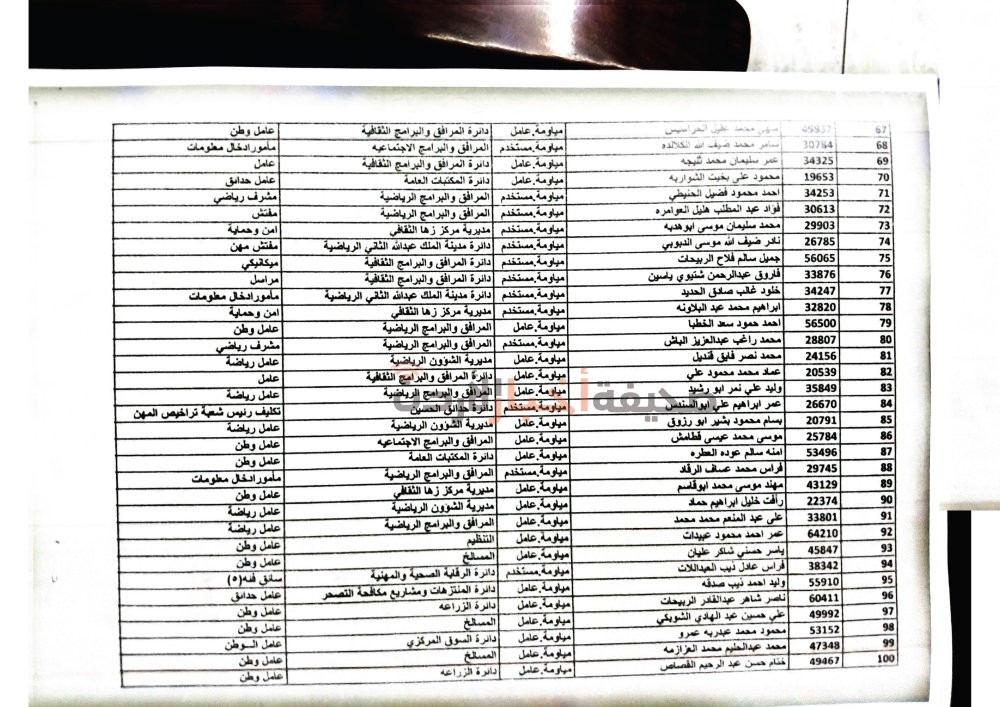 67 49837 محمد عقيل الحراسيس مياومة.عامل دائرة المرافق والبرامج الثقافية عامل وطن
68 30784 سامر محمد ضيف الله الكلالده مياومة.مستخدم المرافق والبرامج الاجتماعيه مأمور ادخال معلومات
69 34325 عمر سليمان محمد ثليجه مياومة.عامل دائرة المرافق والبرامج الثقافية عامل
70 19653 محمود علي بخيت الشواربه مياومة.عامل دائرة المكتبات العامة عامل حدائق
71 34253 احمد محمود فضيل الحنيطي مياومة.مستخدم المرافق والبرامج الرياضية مشرف رياضي
72 30613 فؤاد عبد المطلب هليل العوامره مياومة.مستخدم المرافق والبرامج الرياضية مفتش
73 29903 محمد سليمان موسى ابوهديه مياومة.مستخدم مديرية مركز زها الثقافي امن وحماية
74 26785 نادر ضيف الله موسى الدبوبي مياومة.مستخدم دائرة مدينة الملك عبدالله الثاني الرياضية مفتش مهن
75 56065 جميل سالم فلاح الربيحات مياومة.مستخدم المرافق والبرامج الرياضية ميكانيكي
76 33876 فاروق عبدالرحمن شتيوي ياسين مياومة.مستخدم دائرة المرافق والبرامج الثقافية مراسل
77 34247 خلود غالب صادق الحديد مياومة.مستخدم دائرة مدينة الملك عبدالله الثاني الرياضية مأمور ادخال معلومات
78 32820 ابراهيم محمد عبد البلاونه مياومة.مستخدم مديرية مركز زها الثقافي امن وحماية
79 56500 احمد حمود سعد الخطبا مياومة.عامل المرافق والبرامج الرياضية عامل وطن
80 28807 محمد راغب عبدالعزيز الباش مياومة.مستخدم المرافق والبرامج الرياضية مشرف رياضي
81 24156 محمد نصر فايق قنديل مياومة.عامل مديرية الشؤون الرياضية عامل رياضة
82 20539 عماد محمد محمود علي مياومة.عامل دائرة المرافق والبرامج الثقافية عامل
83 35849 وليد علي نمر ابو رشيد مياومة.عامل المرافق والبرامج الرياضية عامل رياضة
84 26670 عمر ابراهيم علي ابوالسندس مياومة.مستخدم دائرة حدائق الحسين تكليف رئيس شعبة تراخيص المهن
85 20791 بسام محمود بشير ابو رزوق مياومة.عامل مديرية الشؤون الرياضية عامل رياضة
86 25784 موسى محمد عيسى قطامش مياومة.عامل المرافق والبرامج الاجتماعيه عامل وطن
87 53496 امنه سالم عوده العطره مياومة.عامل دائرة المكتبات العامة عامل وطن
88 29745 فراس محمد عساف الرقاد مياومة.مستخدم المرافق والبرامج الرياضية مأمور ادخال معلومات
89 43129 مهند موسى محمد ابوقاسم مياومة.عامل مديرية مركز زها الثقافي عامل وطن
90 22374 رأفت خليل ابراهيم حماد مياومة.عامل مديرية الشؤون الرياضية عامل رياضة
91 33801 علي عبد المنعم محمد محمد مياومة.عامل المرافق والبرامج الرياضية عامل رياضة
92 64210 عمر احمد محمود عبيدات مياومة.عامل التنظيم عامل وطن
93 45847 ياسر حسني شاكر عليان مياومة.عامل المسالخ عامل وطن
94 38342 فراس عادل ذيب العبداللات مياومة.مستخدم دائرة الرقابة الصحية والمهنية سائق فئه(٥)
95 55910 وليد احمد ذيب صدقه مياومة.عامل دائرة المنتزهات ومشاريع مكافحة التصحر عامل حدائق
96 60411 ناصر شاهر عبدالقادر الربيحات مياومة.عامل دائرة الزراعه عامل وطن
97 49992 علي حسين عبد الهادي الشوبكي مياومة.عامل المسالخ عامل وطن
98 53152 محمود محمد عبدربه عمرو مياومة.عامل دائرة السوق المركزي عامل الـوطن
99 47348 محمد عبدالحليم محمد العزازمه مياومة.عامل المسالخ عامل وطن
100 49467 ختام حسن عبد الرحيم القصاص مياومة.عامل دائرة الزراعه عامل وطن
صحيفة أخبار الأردن